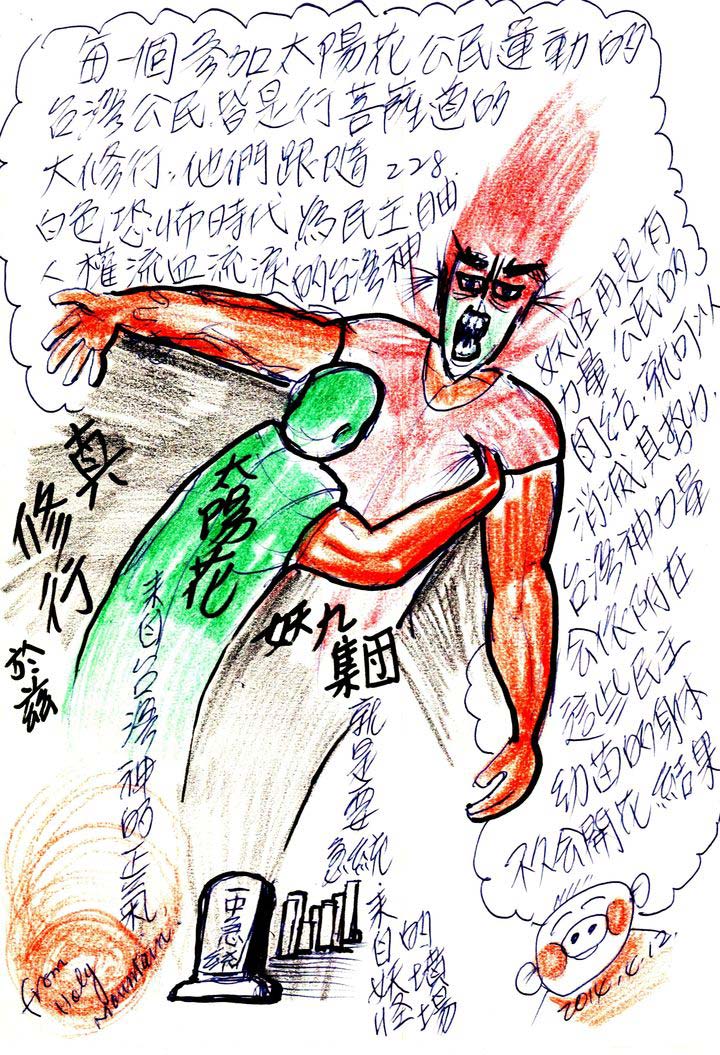 每一個參加太陽花公民運動的
台灣公民皆是行菩薩道的
大修行,他們跟隨228.
白色恐怖時代為民主.自由.
人權流血流淚的台灣神
妖怪再是有
力量.公民的
団結.就可以
消滅其勢力.
台灣神力量
会依附在
這些民主
幼苗的身体
不久会開花結果
真修行於茲
太陽花
來自台灣神的正氣
妖九集団
就是要急統
來自的妖怪墳場
亜急統
from Holy Mountain.
2014.4.12.